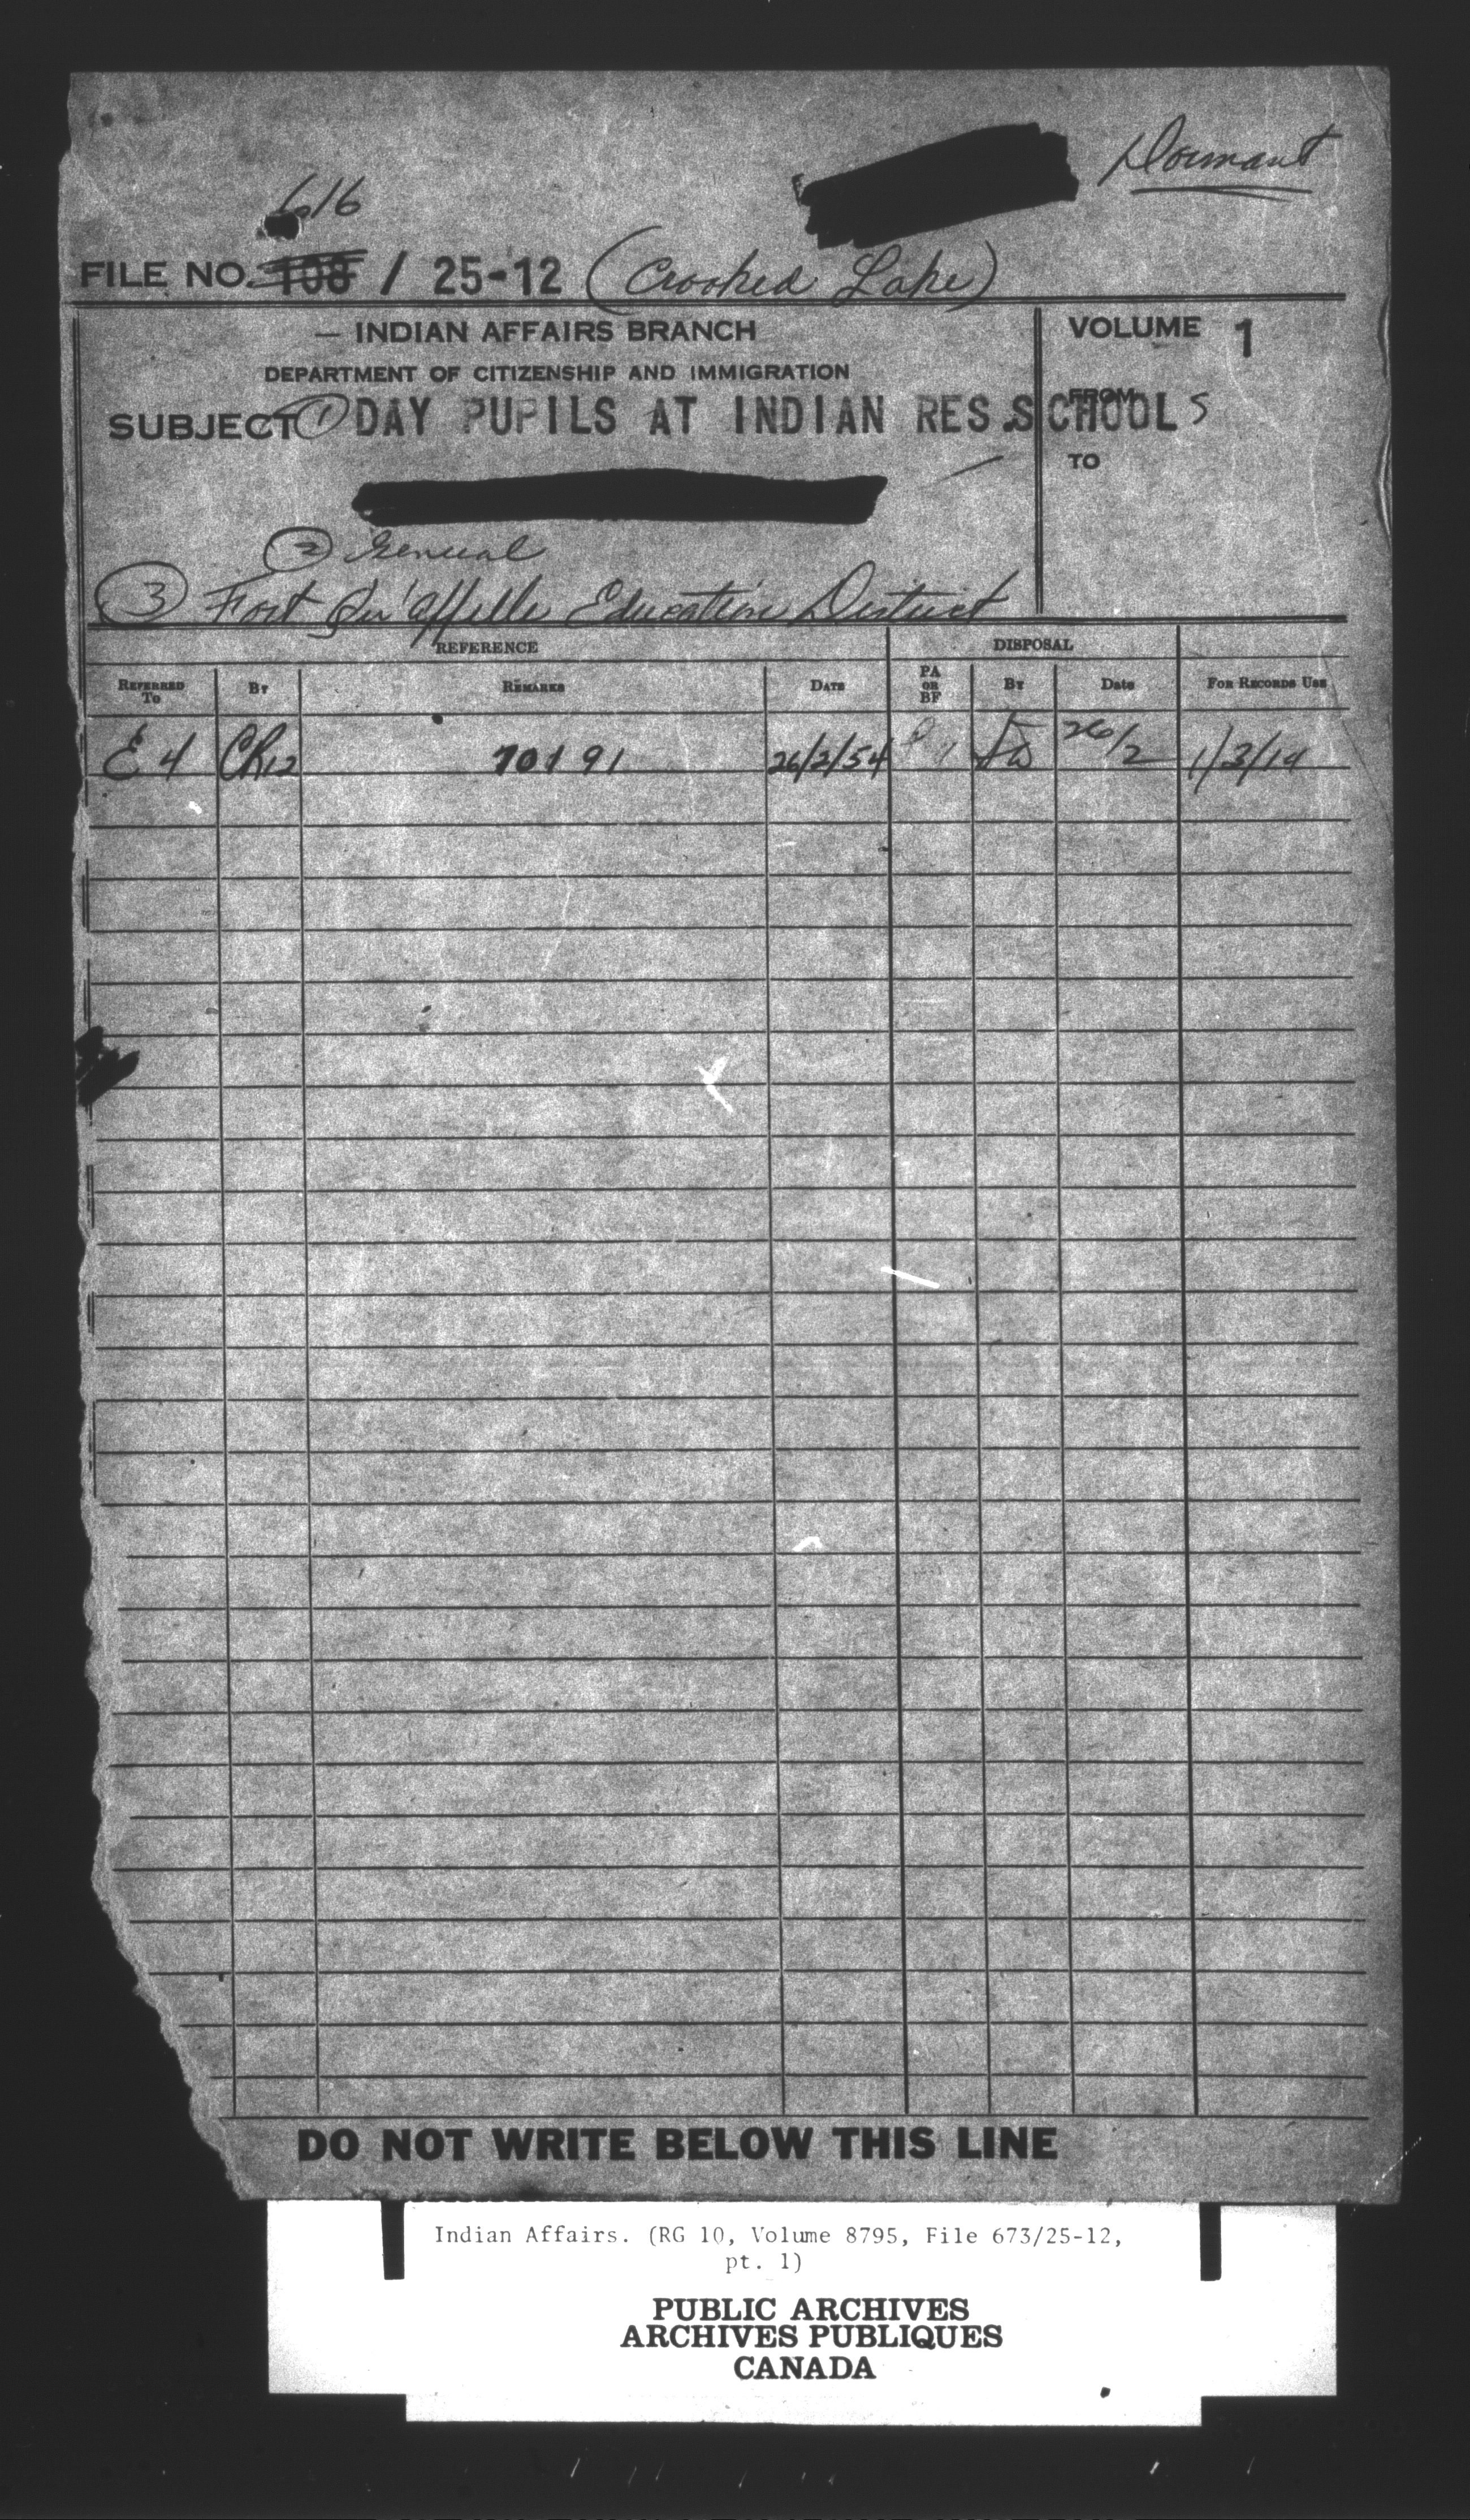 Dormant
616
FILE NO. 108 / 25-12 (Crooked Lake)
— INDIAN AFFAIRS BRANCH
DEPARTMENT OF CITIZENSHIP AND IMMIGRATION
VOLUME 1
SUBJECT ① DAY PUPILS AT INDIAN RES. SCHOOLS
FROM
TO
② General
③ Fort Qu'Appelle Education District
REFERENCE DISPOSAL
REFERRED TO BY REMARKS DATE PA OR BF BY DATE FOR RECORDS USE
E 4 CR12 70191 26/2/54 26/2
DO NOT WRITE BELOW THIS LINE
Indian Affairs. (RG 10, Volume 8795, File 673/25-12,
pt. 1)
PUBLIC ARCHIVES
ARCHIVES PUBLIQUES
CANADA